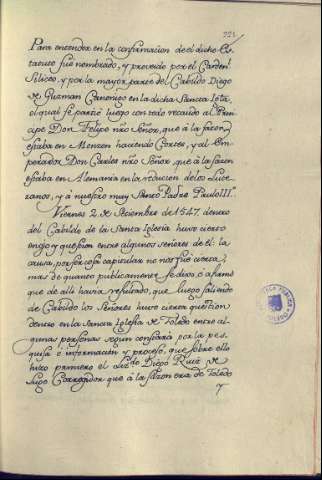 221
Para entender en la confirmacion de el dicho Es-
tatuto fue nombrado, y proveido por el Carden.l
Siliceo, y por la mayor parte del Cabildo Diego
de Guzman Canonigo en la dicha Sancta Igta,
el qual se partió luego con todo recaudo al Prin-
cipe Don Felipo nro Señor, que á la sazon
estaba en Monzon haciendo Cortes, y al Em-
perador Don Carlos nro Señor, que á la sazon
estaba en Alemania en la reducion de los Lute-
ranos, y á nuestro muy Sancto Padre Paulo III.
Viernes 2 de Deciembre de 1547 dentro
del Cabildo de la Santa Iglesia huvo cierto
enojo y question entre algunos señores de él: la
causa, por ser cosa capitular no nos fue cierta,
mas de quanto publicamente se dixo ó afirmó
que de alli havia resultado, que luego saliendo
de Cabildo los Señores huvo cierta question
dentro en la Sancta Iglesia de Toledo entre al-
gunas personas segun constará por la pes-
quisa é informacion y proceso, que sobre ello
hizo primero el Liz.do Diego Ruiz de
Lugo Corregidor que á la sazon era de Toledo
y